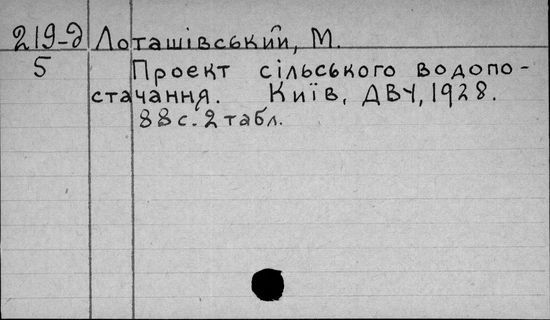 219-д Лоташівський, М.
5 Проект сільського водопо-
стачання. Київ, ДВУ, 1928.
88 с. 2 табл.